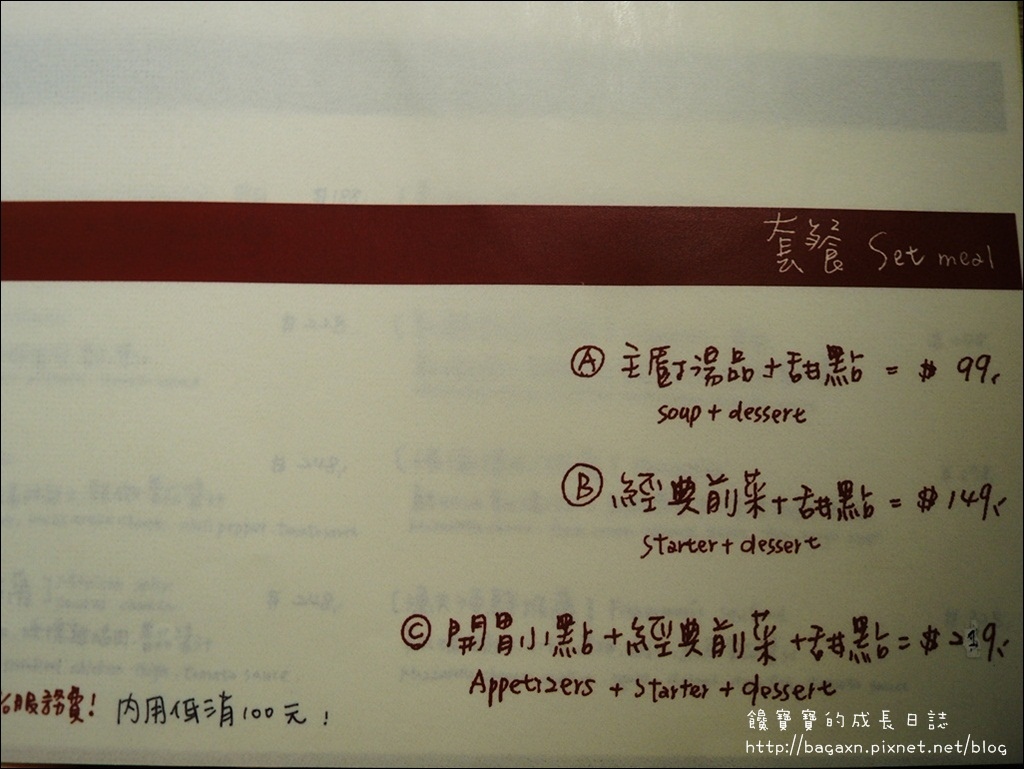 套餐 Set meal
Ⓐ 主廚湯品+甜點 = $ 99.
soup + dessert
Ⓑ 經典前菜+甜點 = $149.
Starter + dessert
Ⓒ 開胃小點+經典前菜+甜點=$219.
Appetizers + Starter + dessert
服務費! 內用低消100元!
饞寶寶的成長日誌
http://bagaxn.pixnet.net/blog